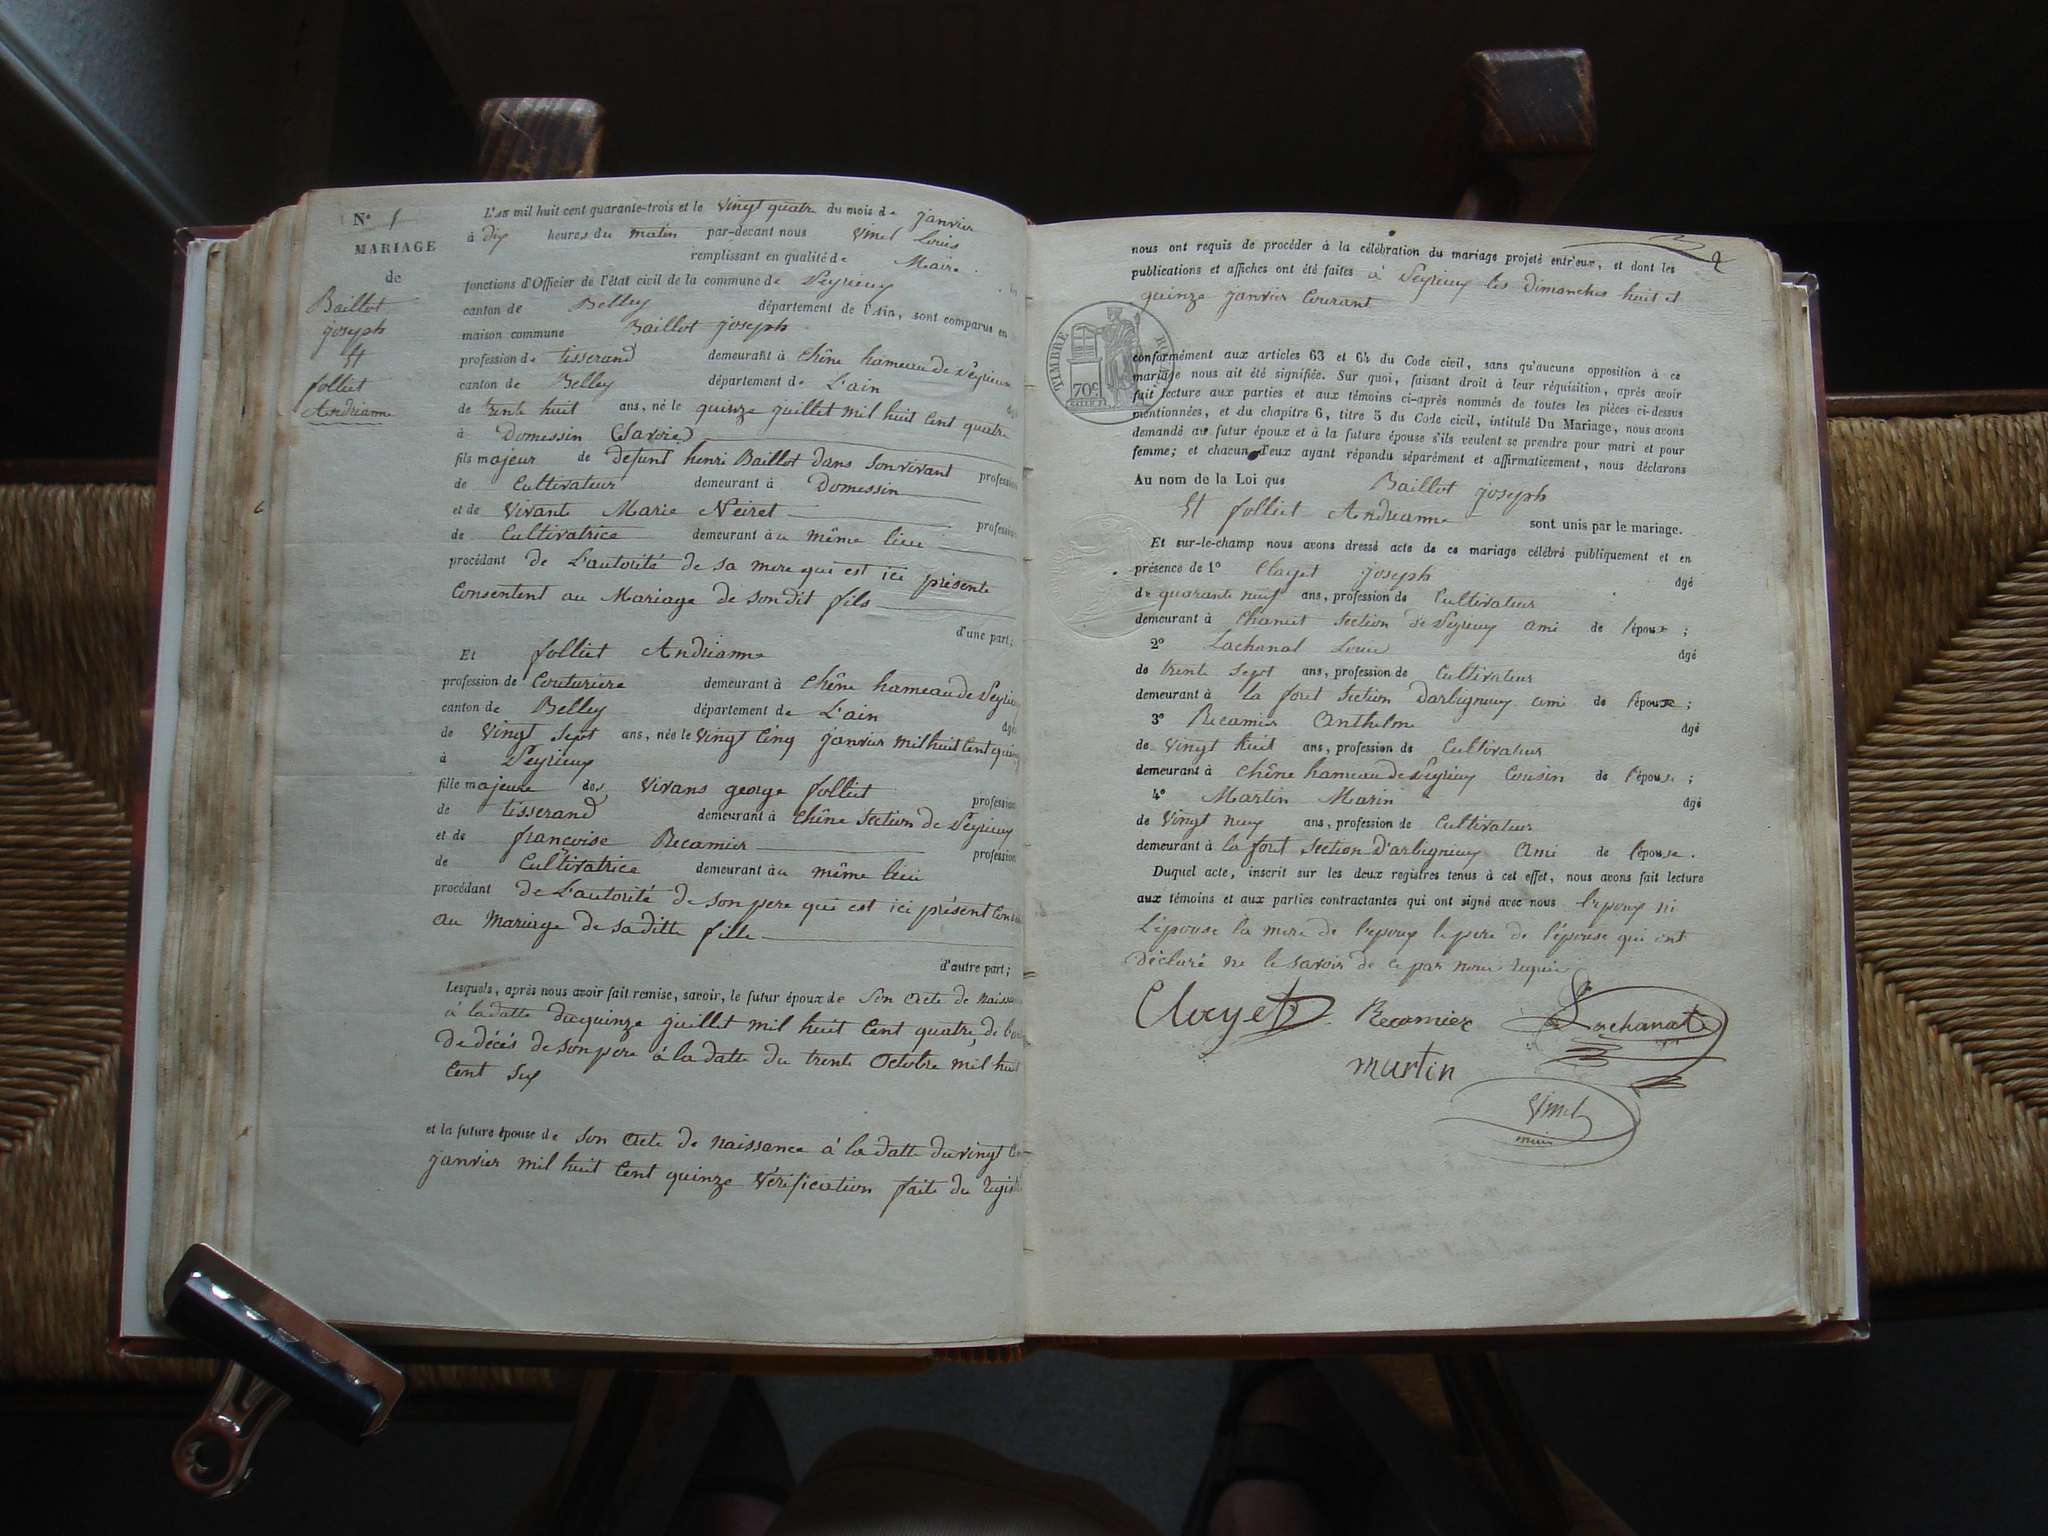 N° 1
MARIAGE
de
Baillot
joseph
Et
folliet
Andrianne
L'an mil huit cent quarante-trois et le vingt quatre du mois de janvier
à dix heures du matin par-devant nous Vinel Louis
remplissant en qualité de Maire
fonctions d'Officier de l'état civil de la commune de Peyrieux
canton de Belley département de l'Ain, sont comparus en
maison commune Baillot joseph
profession de tisserand demeurant à Chêne hameau de Peyrieux
canton de Belley département de L'ain
de trente huit ans, né le quinze juillet mil huit Cent quatre
à Domessin (Savoie)
fils majeur de defunt henri Baillot dans son vivant profession
de Cultivateur demeurant à Domessin
et de vivante Marie Neiret profession
de Cultivatrice demeurant au même lieu
procédant de L'autorité de sa mere qui est ici présente
Consentent au Mariage de son dit fils
d'une part;
Et folliet Andrianne
profession de Couturiere demeurant à Chêne hameau de Peyrieu
canton de Belley département de L'ain
de vingt sept ans, née le vingt Cinq janvier mil huit Cent quinze
à Peyrieux
fille majeure des vivans george folliet profession
de tisserand demeurant à Chêne Section de Peyrieux
et de françoise Recamier profession
de Cultivatrice demeurant au même lieu
procédant de L'autorité de son pere qui est ici présent
au Mariage de sa ditte fille
d'autre part;
Lesquels, après nous avoir fait remise, savoir, le futur époux de Son acte de naissance
à la datte du quinze juillet mil huit Cent quatre, de
de décés de son pere à la datte du trente Octobre mil huit
Cent six
et la future épouse de Son acte de naissance à la datte du vingt
janvier mil huit Cent quinze Vérification faite du
2
nous ont requis de procéder à la célébration du mariage projeté entr'eux, et dont les
publications et affiches ont été faites à Peyrieux les dimanches huit et
quinze janvier Courant
TIMBRE ROYAL
70c
conformément aux articles 63 et 64 du Code civil, sans qu'aucune opposition à ce
mariage nous ait été signifiée. Sur quoi, faisant droit à leur réquisition, après avoir
fait lecture aux parties et aux témoins ci-après nommés de toutes les pièces ci-dessus
mentionnées, et du chapitre 6, titre 5 du Code civil, intitulé Du Mariage, nous avons
demandé au futur époux et à la future épouse s'ils veulent se prendre pour mari et pour
femme; et chacun d'eux ayant répondu séparément et affirmativement, nous déclarons
Au nom de la Loi que Baillot joseph
Et folliet Andrianne sont unis par le mariage.
Et sur-le-champ nous avons dressé acte de ce mariage célébré publiquement et en
présence de 1° Clayet joseph âgé
de quarante neuf ans, profession de Cultivateur
demeurant à Section de Peyrieux ami de l'époux;
2° Lachanal Louis âgé
de trente sept ans, profession de Cultivateur
demeurant à la foret Section D'arbignieux ami de l'époux;
3° Recamier Anthelme âgé
de vingt huit ans, profession de Cultivateur
demeurant à Chêne hameau de Peyrieux Cousin de l'épouse;
4° Martin Marin âgé
de vingt neuf ans, profession de Cultivateur
demeurant à la foret Section D'arbignieux Ami de l'épouse.
Duquel acte, inscrit sur les deux registres tenus à cet effet, nous avons fait lecture
aux témoins et aux parties contractantes qui ont signé avec nous l'epoux ni
L'épouse la mere de l'epoux le pere de l'épouse qui ont
déclaré ne le savoir de ce par nous requis
Clayet Recamier Lachanal
martin
Vinel
maire